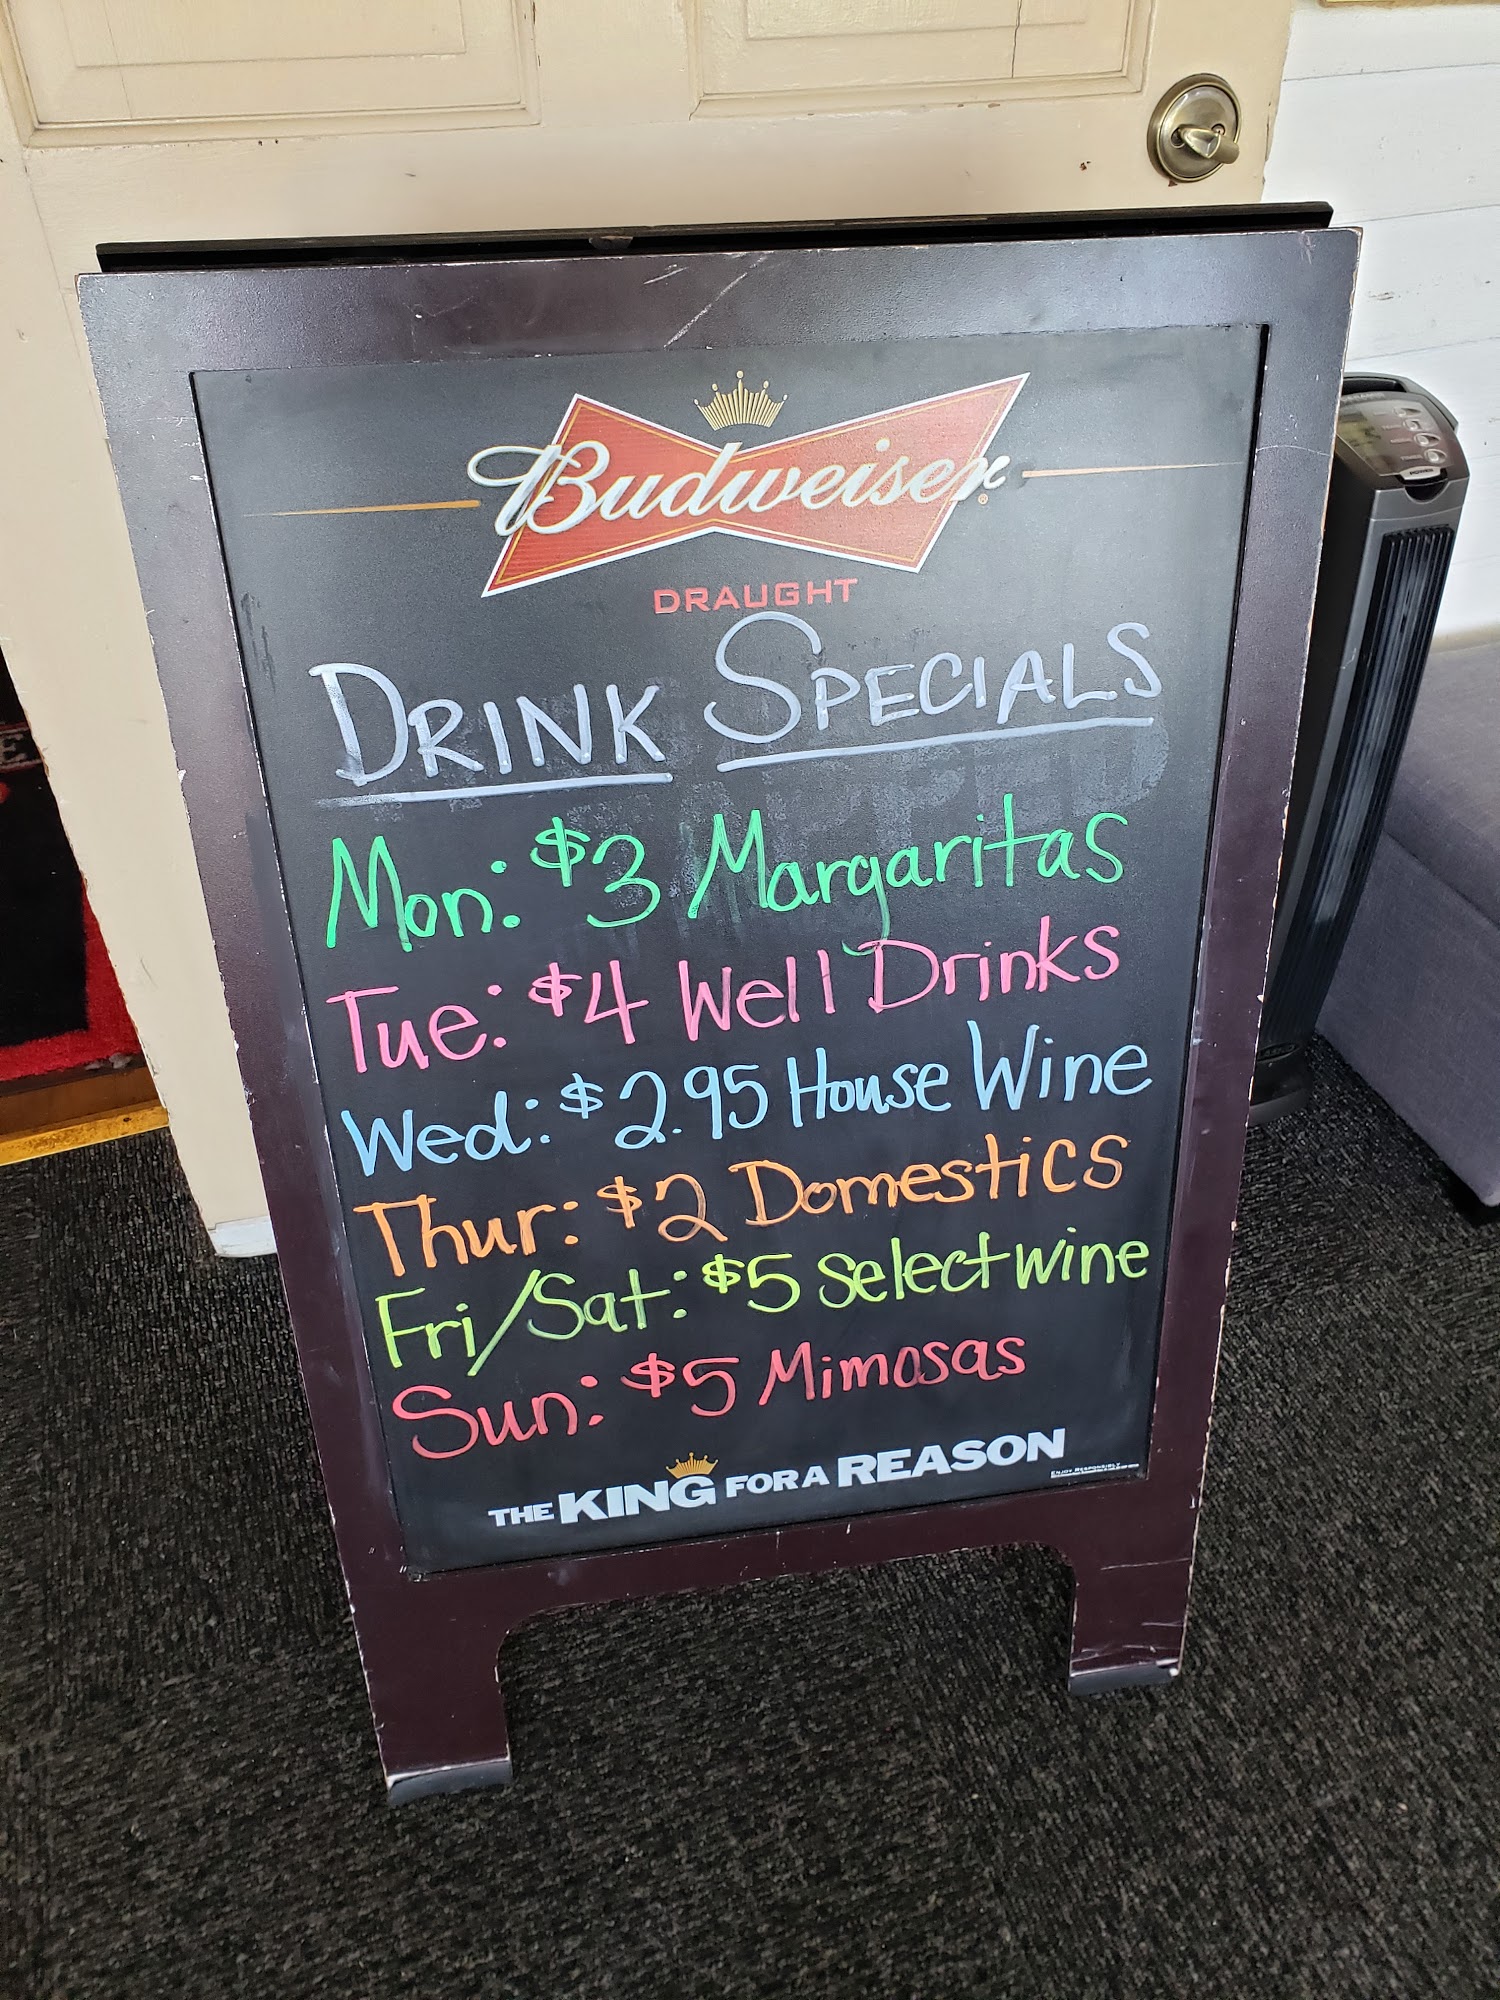 Budweiser
DRAUGHT
DRINK SPECIALS
Mon: $3 Margaritas
Tue: $4 Well Drinks
Wed: $2.95 House Wine
Thur: $2 Domestics
Fri/Sat: $5 select wine
Sun: $5 Mimosas
THE KING FOR A REASON
ENJOY RESPONSIBLY